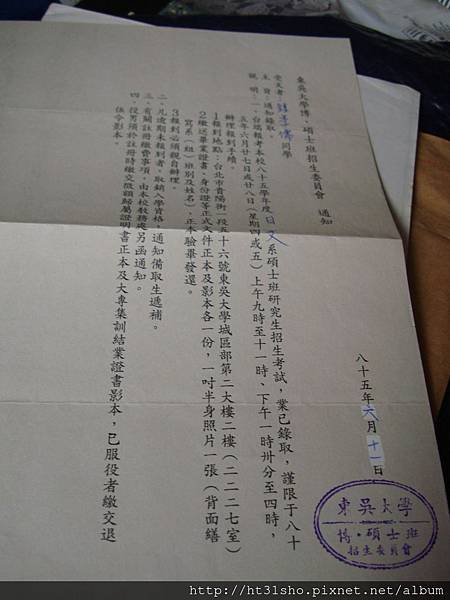 東吳大學博、碩士班招生委員會　通知
八十五年六月十一日
受文者：同學
主　旨：通知錄取。
說　明：一、台端報考本校八十五學年度日文系碩士班研究生招生考試，業已錄取，謹限于八十
五年六月廿七日或廿八日（星期四或五）上午九時至十一時、下午一時卅分至四時，
辦理報到手續。
1報到地點：台北市貴陽街一段五十六號東吳大學城區部第二大樓二樓（二二二七室）
2繳送畢業證書、身份證等正式文件正本及影本各一份，一吋半身照片一張（背面繕
寫系（組）班別及姓名），正本驗畢發還。
3報到必須親自辦理。
二、凡逾期未報到者，取銷入學資格，通知備取生遞補。
三、有關註冊繳費事項，由本校教務處另函通知。
四、役男須於註冊時繳交徵額歸屬證明書正本及大專集訓結業證書影本，已服役者繳交退
伍令影本。
東吳大學
博・碩士班
招生委員會
http://ht31sho.pixnet.net/album